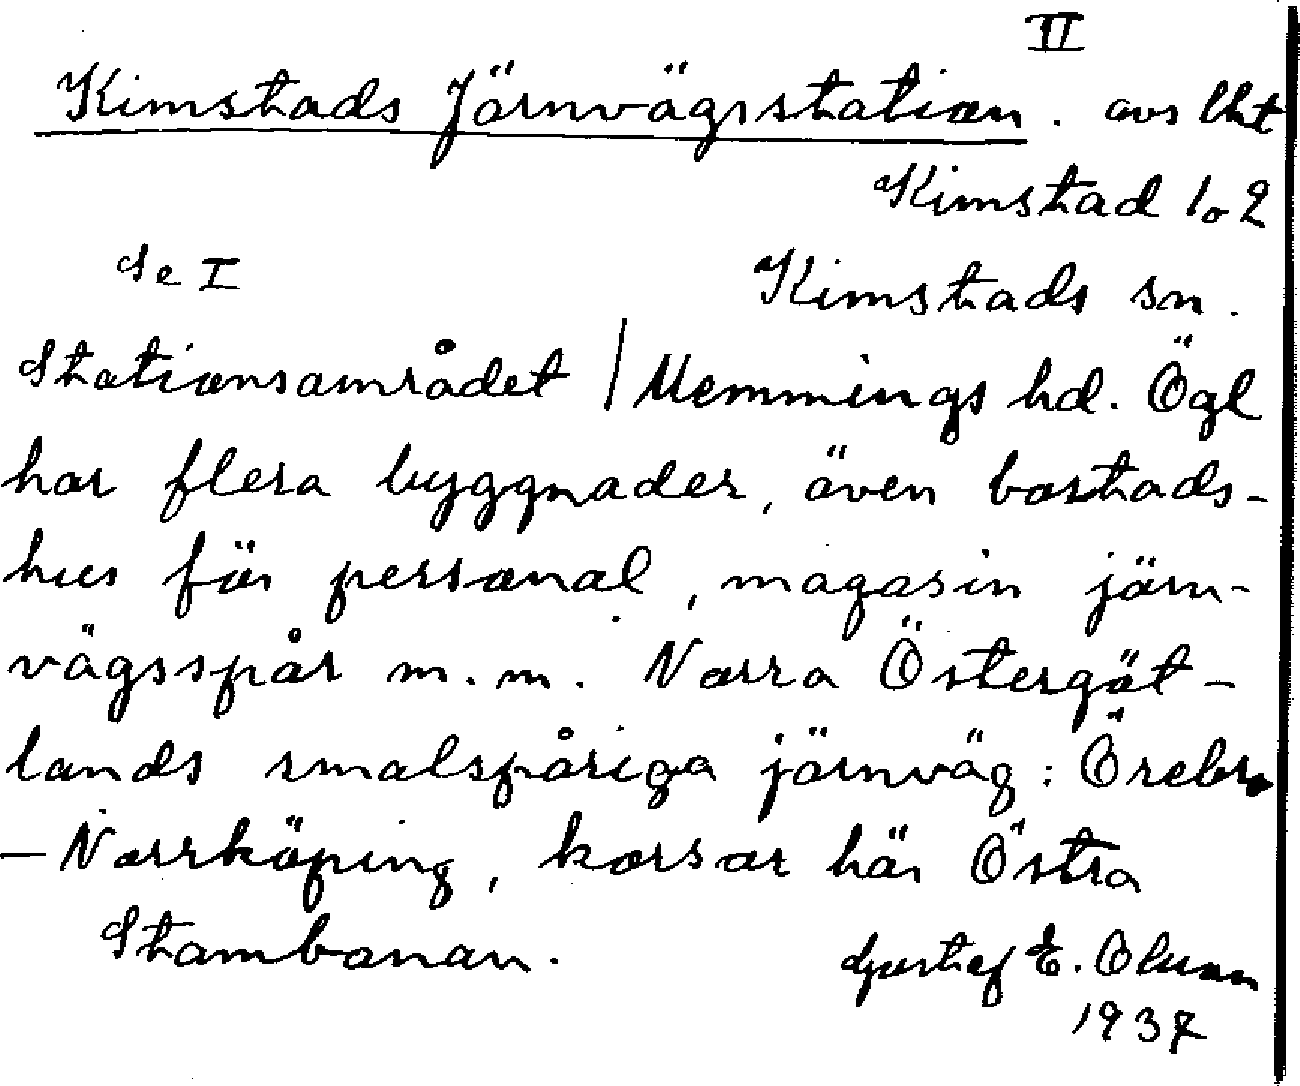 II
Kimstads Järnvägsstation. avs lht
Kimstad 1o2
Se I
Kimstads sn.
Stationsområdet / Memmings hd. Ögl
har flera byggnader, även bostads-
hus för personal, magasin järn-
vägsspår m.m. Norra Östergöt-
lands smalspåriga järnväg: Örebro
- Norrköping, korsar här Östra
Stambanan.
Gustaf E. Olsson
1937